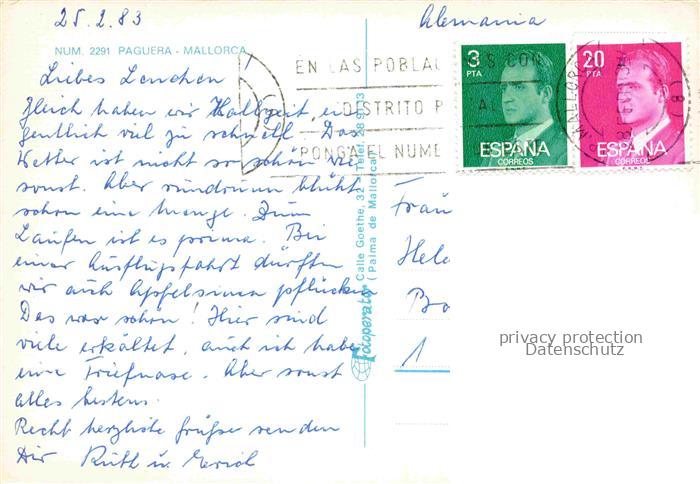 25.2.83
Alemania
NUM. 2291 PAGUERA - MALLORCA
Liebes Lenchen!
Gleich haben wir Halbzeit, ei-
gentlich viel zu schnell. Das
Wetter ist nicht so schön wie
sonst. Aber rundrum blüht
schon eine Menge. Zum
Laufen ist es prima. Bei
einer Ausflugsfahrt durften
wir auch Apfelsinen pflücken
Das war schön! Hier sind
viele erkältet, auch ich habe
eine Triefnase. Aber sonst
alles bestens.
Recht herzliche Grüße senden
Dir Ruth u.
EN LAS POBLAC S CON
DISTRITO P AL
PONGA EL NUME
MALLORC
3 PTA
ESPAÑA
CORREOS
20 PTA
ESPAÑA
CORREOS
Fotoperator Calle Goethe, 32 - Telef. 28 91 13
(Palma de Mallorca)
Fräu
Hele
Bo
1
privacy protection
Datenschutz